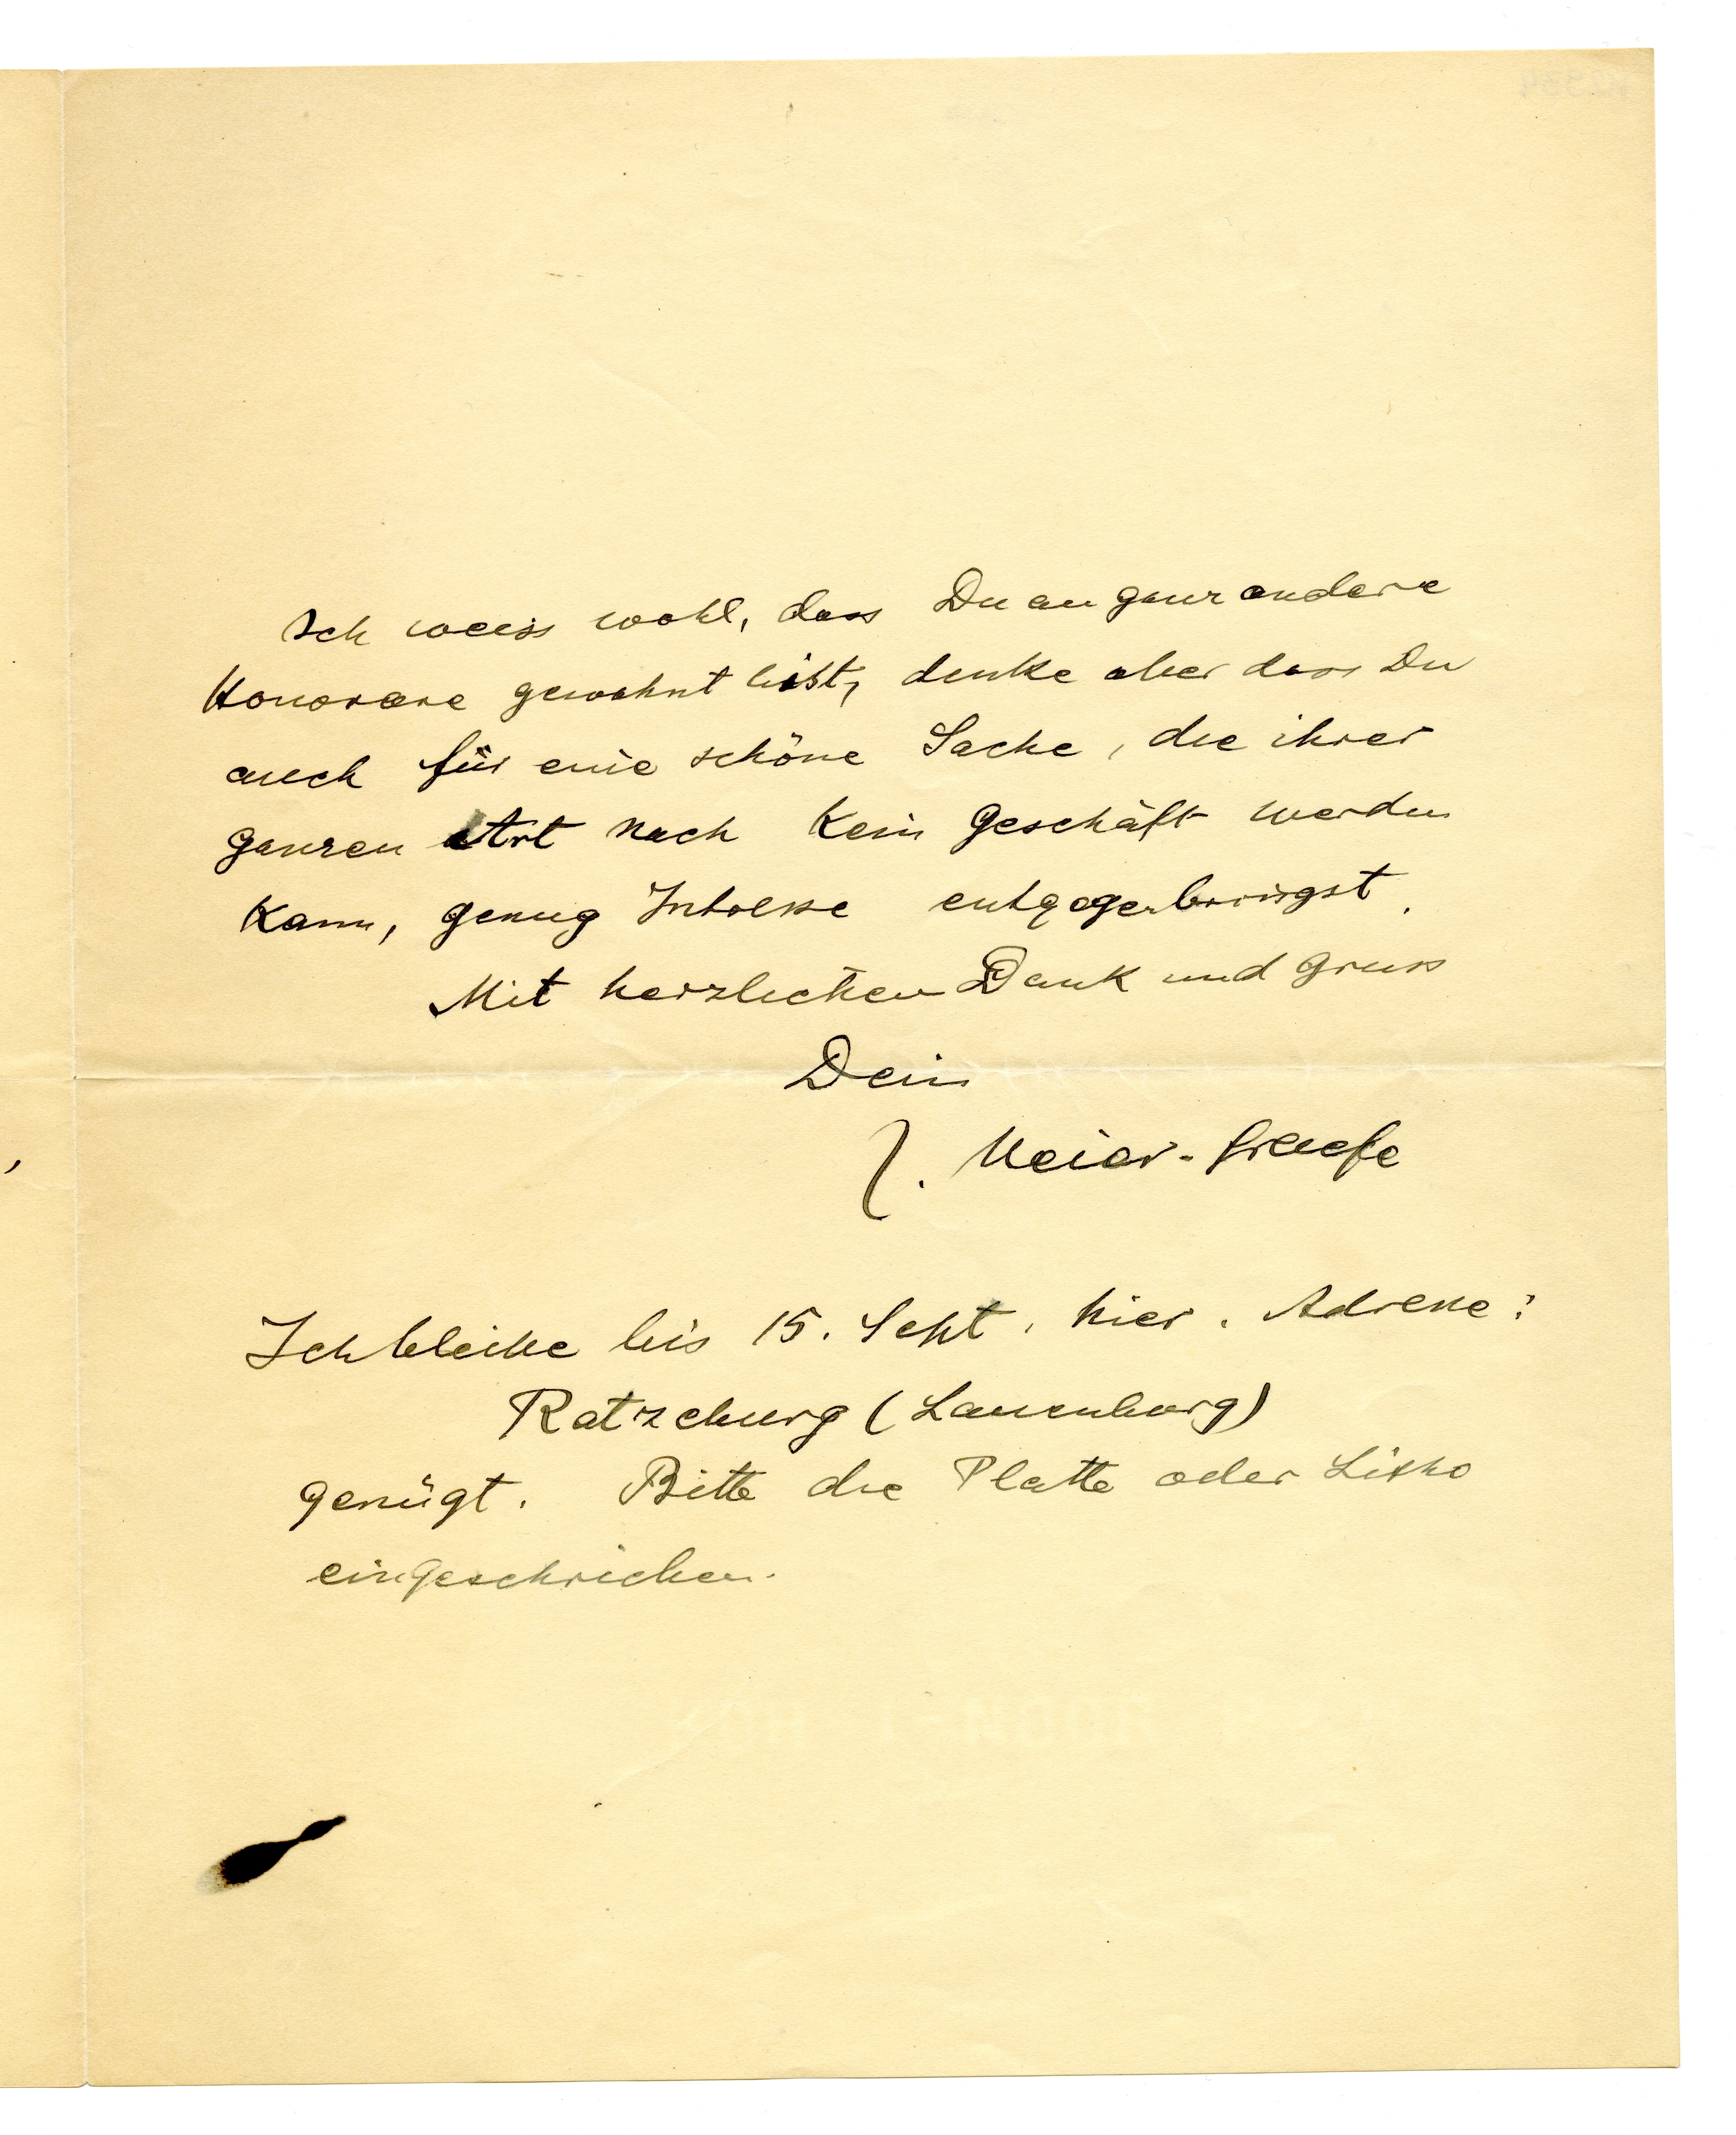 Ich weiss wohl, dass Du an ganz andere
Honorare gewohnt bist, denke aber dass Du
auch für eine schöne Sache, die ihrer
ganzen Art nach kein Geschäft werden
kann, genug Interesse entgegenbringst.
Mit herzlichem Dank und Gruss
Dein
J. Meier-Graefe
Ich bleibe bis 15. Sept. hier. Adresse:
Ratzeburg (Lauenburg)
genügt. Bitte die Platte oder Litho
eingeschrieben.